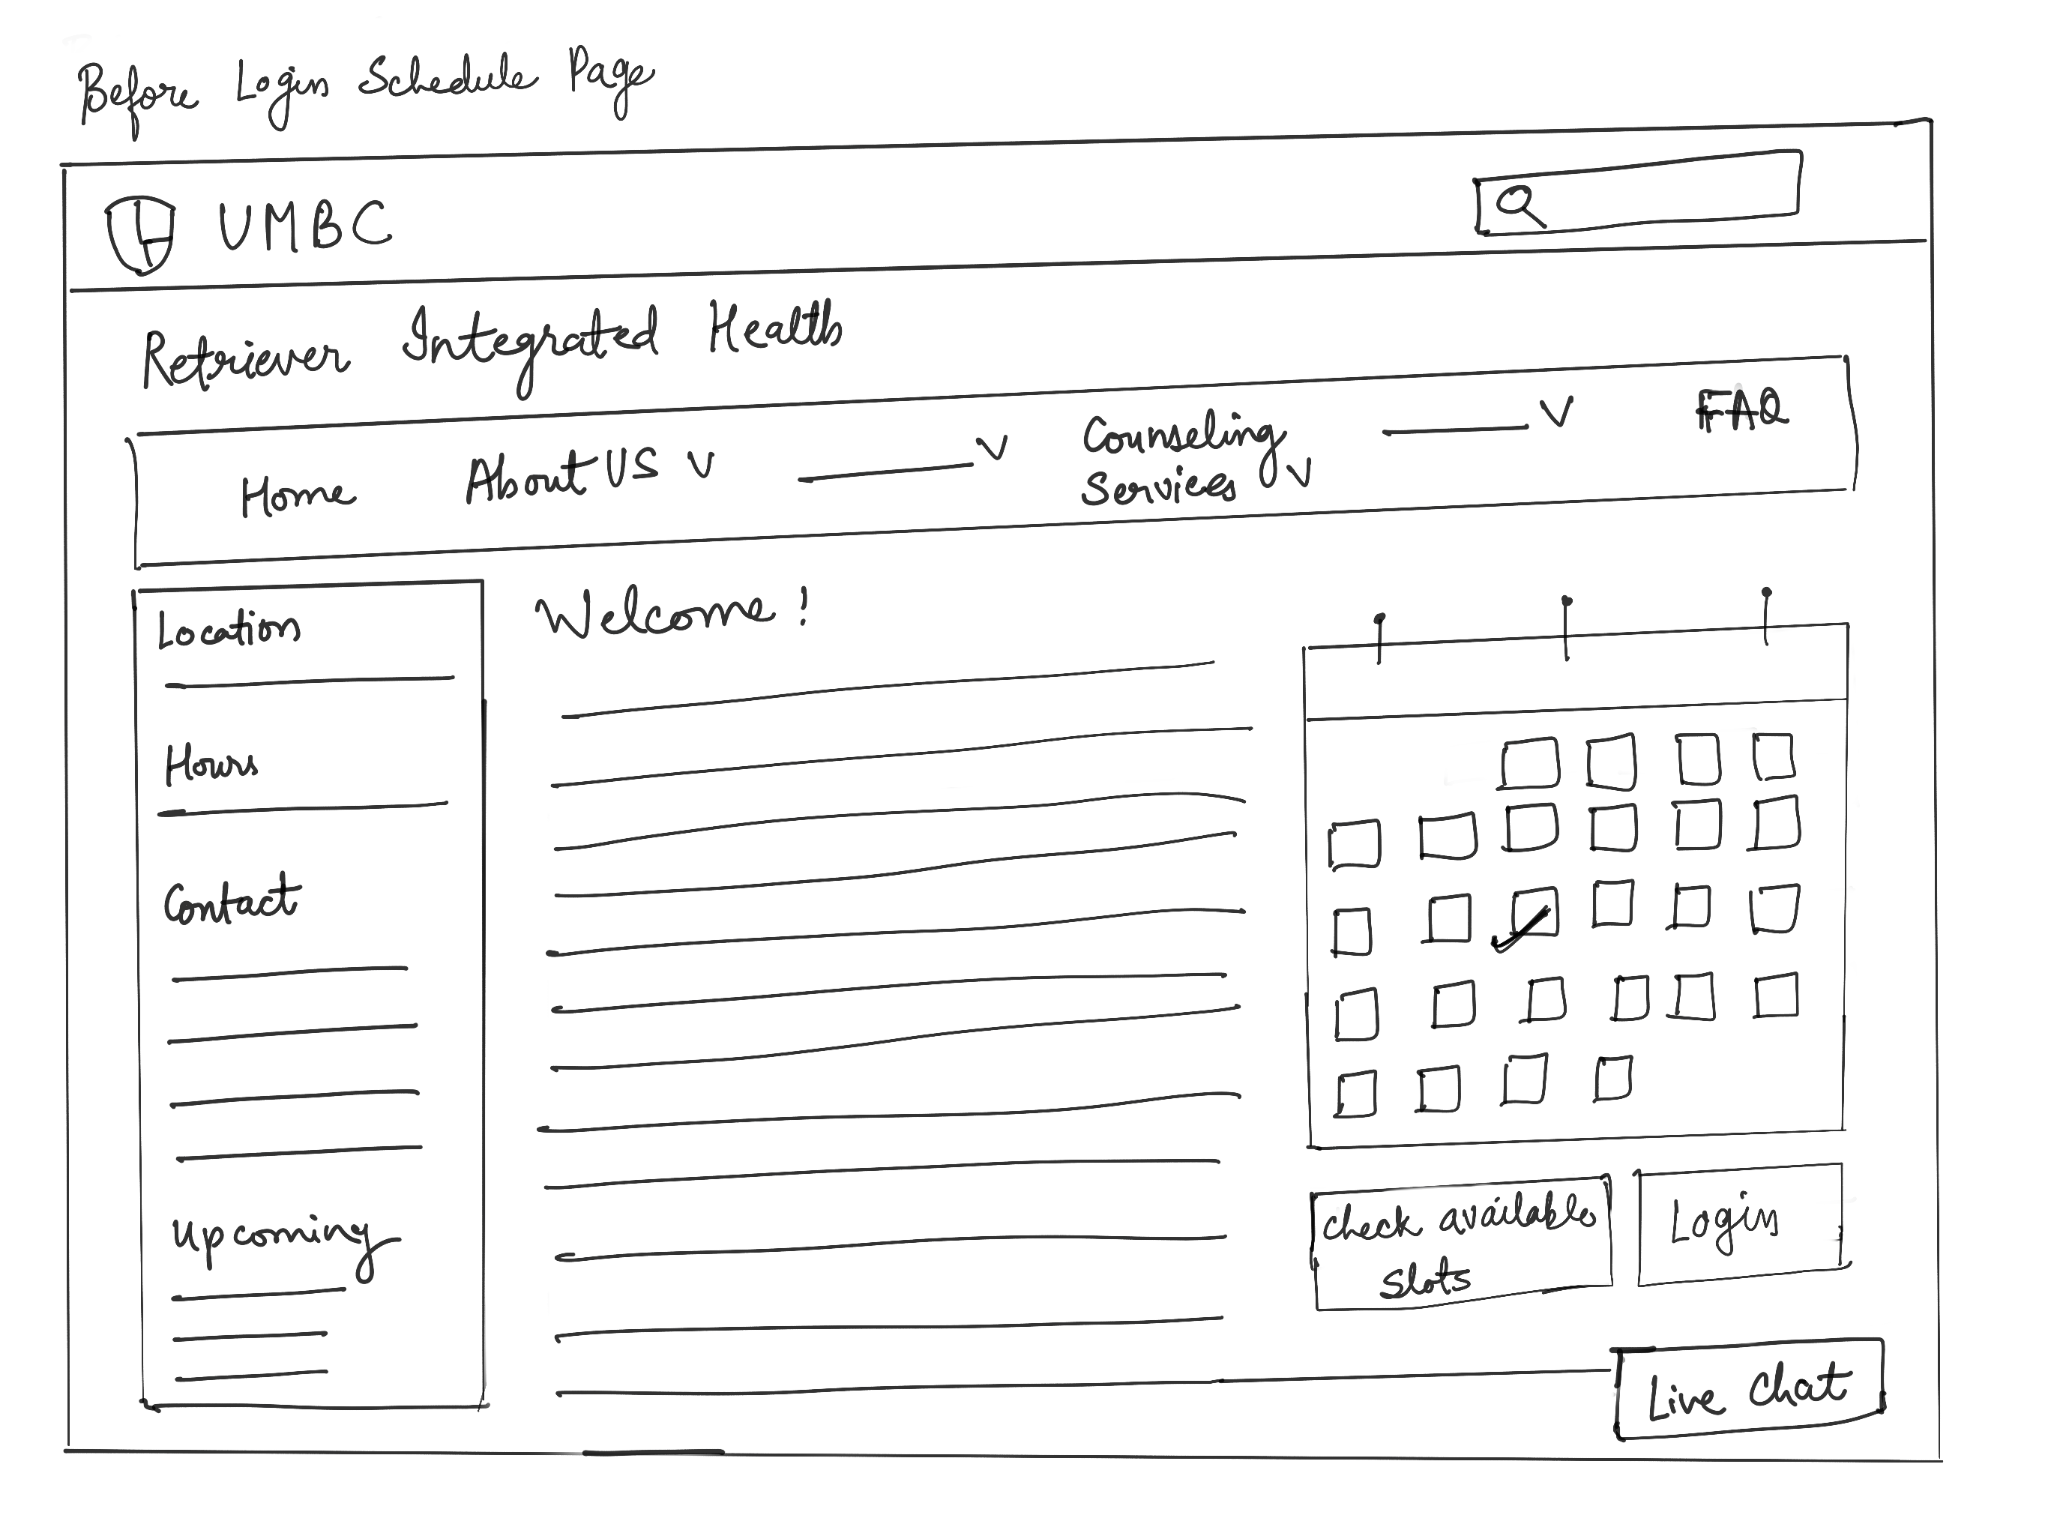 Before Login Schedule Page
UMBC
Retriever Integrated Health
Home About US Counseling Services FAQ
Location
Hours
Contact
Upcoming
Welcome!
check available
slots
Login
Live Chat